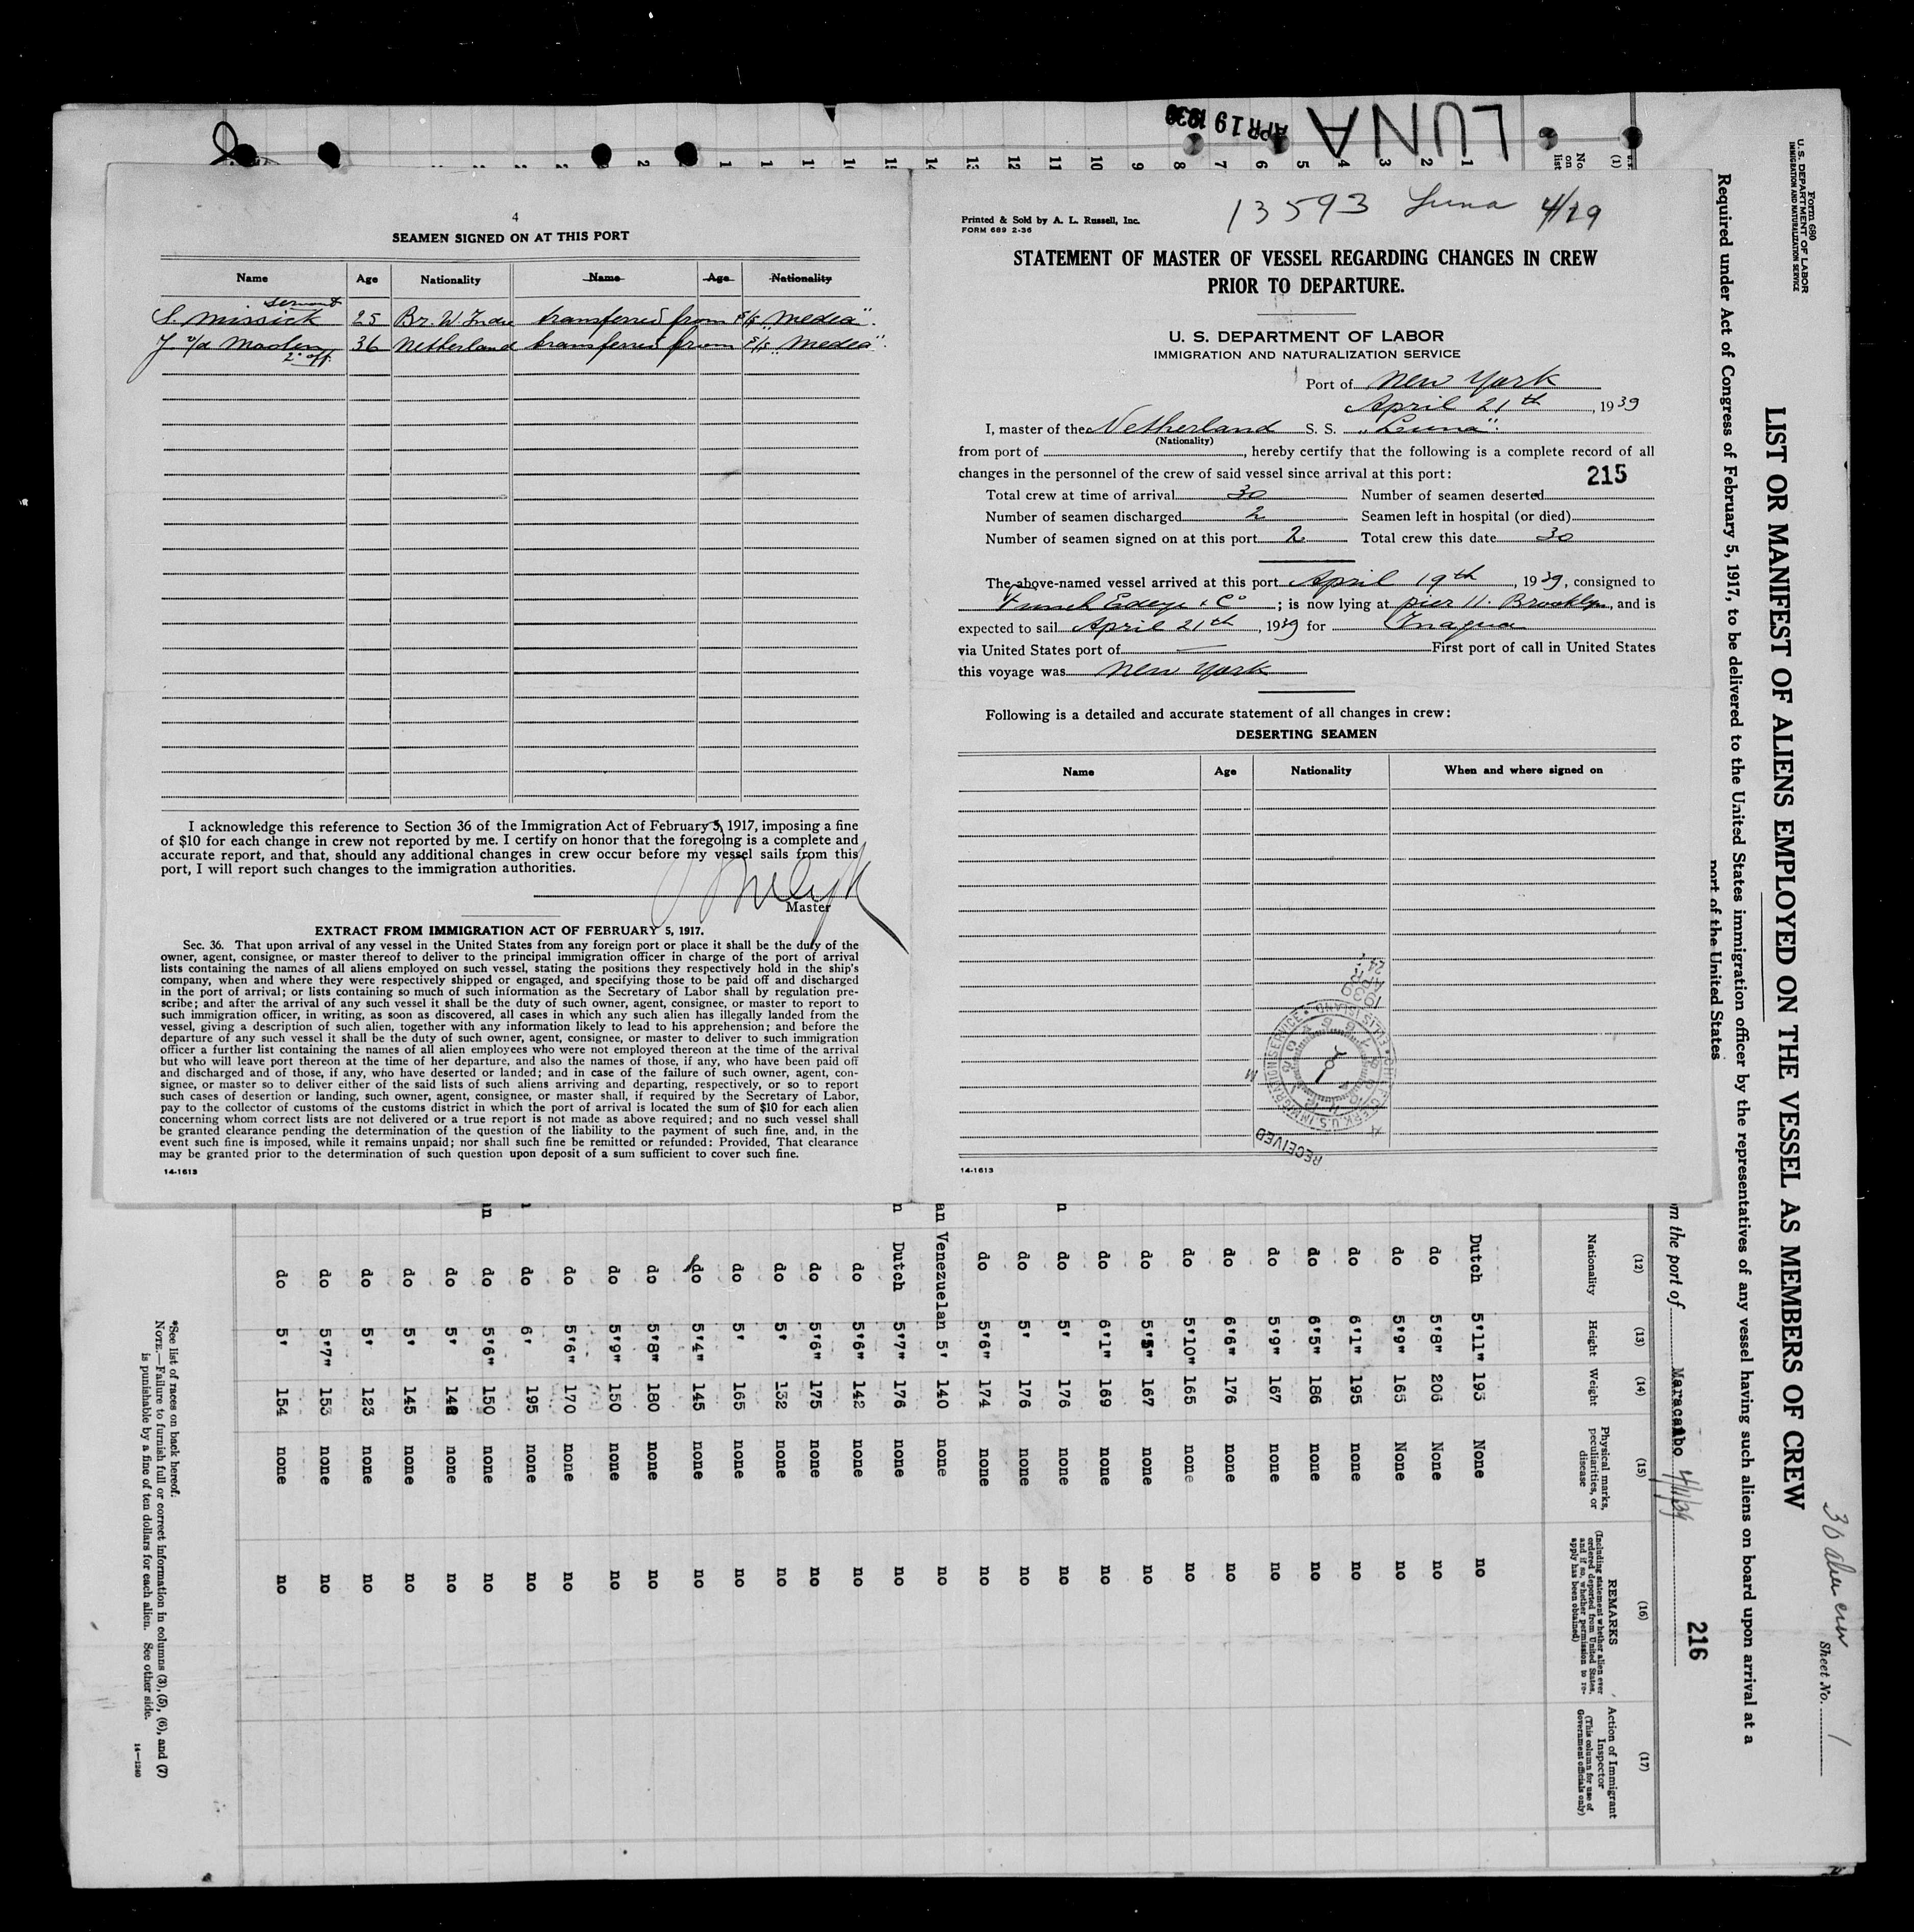 4
SEAMEN SIGNED ON AT THIS PORT
Name Age Nationality Name Age Nationality
servant
S. Missick 25 Br. W. Indie transferred from S/S „Medea".
J. v/d Maden 36 Netherland transferred from S/S „Medea".
2e off.
I acknowledge this reference to Section 36 of the Immigration Act of February 5, 1917, imposing a fine
of $10 for each change in crew not reported by me. I certify on honor that the foregoing is a complete and
accurate report, and that, should any additional changes in crew occur before my vessel sails from this
port, I will report such changes to the immigration authorities.
Master
EXTRACT FROM IMMIGRATION ACT OF FEBRUARY 5, 1917.
Sec. 36. That upon arrival of any vessel in the United States from any foreign port or place it shall be the duty of the
owner, agent, consignee, or master thereof to deliver to the principal immigration officer in charge of the port of arrival
lists containing the names of all aliens employed on such vessel, stating the positions they respectively hold in the ship's
company, when and where they were respectively shipped or engaged, and specifying those to be paid off and discharged
in the port of arrival; or lists containing so much of such information as the Secretary of Labor shall by regulation pre-
scribe; and after the arrival of any such vessel it shall be the duty of such owner, agent, consignee, or master to report to
such immigration officer, in writing, as soon as discovered, all cases in which any such alien has illegally landed from the
vessel, giving a description of such alien, together with any information likely to lead to his apprehension; and before the
departure of any such vessel it shall be the duty of such owner, agent, consignee, or master to deliver to such immigration
officer a further list containing the names of all alien employees who were not employed thereon at the time of the arrival
but who will leave port thereon at the time of her departure, and also the names of those, if any, who have been paid off
and discharged and of those, if any, who have deserted or landed; and in case of the failure of such owner, agent, con-
signee, or master so to deliver either of the said lists of such aliens arriving and departing, respectively, or so to report
such cases of desertion or landing, such owner, agent, consignee, or master shall, if required by the Secretary of Labor,
pay to the collector of customs of the customs district in which the port of arrival is located the sum of $10 for each alien
concerning whom correct lists are not delivered or a true report is not made as above required; and no such vessel shall
be granted clearance pending the determination of the question of the liability to the payment of such fine, and, in the
event such fine is imposed, while it remains unpaid; nor shall such fine be remitted or refunded: Provided, That clearance
may be granted prior to the determination of such question upon deposit of a sum sufficient to cover such fine.
14-1613
13593 Luna 4/19
Printed & Sold by A. L. Russell, Inc.
FORM 689 2-36
STATEMENT OF MASTER OF VESSEL REGARDING CHANGES IN CREW
PRIOR TO DEPARTURE.
U. S. DEPARTMENT OF LABOR
IMMIGRATION AND NATURALIZATION SERVICE
Port of New York
April 21th, 1939
I, master of the Netherland S. S. „Luna".
(Nationality)
from port of , hereby certify that the following is a complete record of all
changes in the personnel of the crew of said vessel since arrival at this port:
215
Total crew at time of arrival 30 Number of seamen deserted
Number of seamen discharged 2 Seamen left in hospital (or died)
Number of seamen signed on at this port 2. Total crew this date 30
The above-named vessel arrived at this port April 19th, 1939, consigned to
Funch Edeye & Co; is now lying at pier 11. Brooklyn, and is
expected to sail April 21th, 1939 for Inagua
via United States port of — First port of call in United States
this voyage was New York
Following is a detailed and accurate statement of all changes in crew:
DESERTING SEAMEN
Name Age Nationality When and where signed on
RECEIVED
1939
APR
24
14-1613
LUNA
APR 19 1939
Form 680
U. S. DEPARTMENT OF LABOR
IMMIGRATION AND NATURALIZATION SERVICE
30 alien crew
Sheet No. 1
LIST OR MANIFEST OF ALIENS EMPLOYED ON THE VESSEL AS MEMBERS OF CREW
Required under Act of Congress of February 5, 1917, to be delivered to the United States immigration officer by the representatives of any vessel having such aliens on board upon arrival at a
port of the United States
216
m the port of Maracaibo 4/11/39
(1) (12) (13) (14) (15) (16) (17)
No. on list
Nationality
Height
Weight
Physical marks, peculiarities, or disease
REMARKS
(Including statement whether alien ever ordered deported from United States, and if so, whether permission to re-apply has been obtained)
Action of Immigrant Inspector
(This column for use of Government officials only)
1 Dutch 5'11" 193 None no
2 do 5'8" 206 None no
3 do 5'9" 165 None no
4 do 6'1" 195 none no
5 do 6'5" 186 none no
6 do 5'9" 167 none no
7 do 6'6" 176 none no
8 do 5'10" 165 none no
9 do 5'5" 167 none no
10 do 6'1" 169 none no
11 do 5' 176 none no
12 do 5' 176 none no
13 do 5'6" 174 none no
14 an Venezuelan 5' 140 none no
15 n Dutch 5'7" 176 none no
do 5'6" 142 none no
do 5'6" 175 none no
do 5' 132 none no
do 5' 165 none no
do 5'4" 145 none no
do 5'8" 180 none no
do 5'9" 150 none no
do 5'6" 170 none no
do 6' 195 none no
do 5'6" 150 none no
do 5' 148 none no
do 5' 145 none no
do 5' 123 none no
do 5'7" 153 none no
do 5' 154 none no
*See list of races on back hereof.
NOTE.—Failure to furnish full or correct information in columns (3), (5), (6), and (7)
is punishable by a fine of ten dollars for each alien. See other side.
14—1240